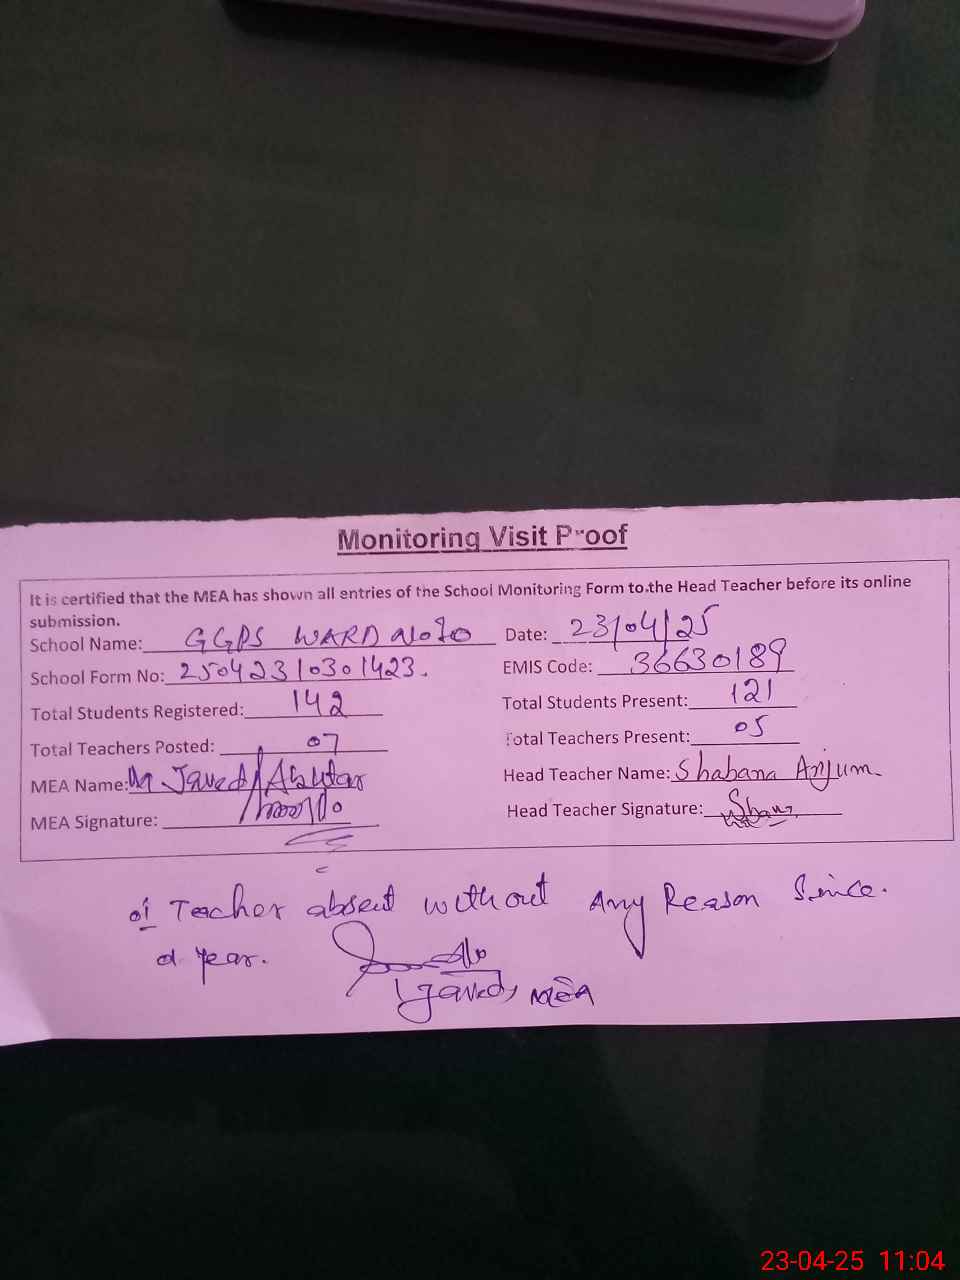 Monitoring Visit Proof
It is certified that the MEA has shown all entries of the School Monitoring Form to the Head Teacher before its online
submission.
School Name: GGPS WARD No 10
Date: 23/04/25
School Form No: 25042310301423.
EMIS Code: 36630189
Total Students Registered: 142
Total Students Present: 121
Total Teachers Posted: 07
Total Teachers Present: 05
MEA Name: M Javed Akhtar
Head Teacher Name: Shabana Anjum.
MEA Signature:
Head Teacher Signature:
01 Teacher absent without Any Reason Since.
a year.
Javed, MEA
23-04-25 11:04